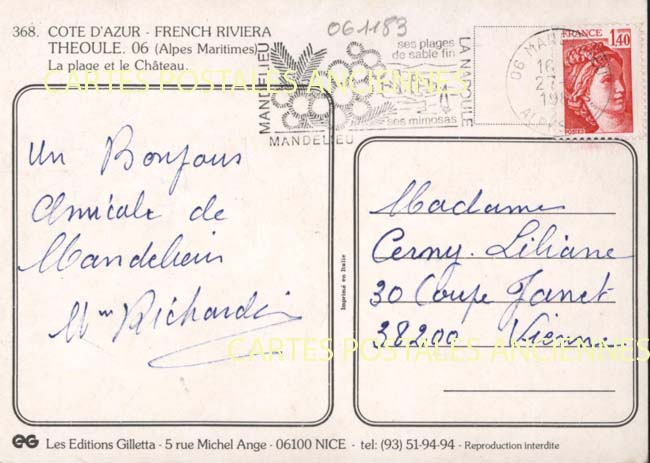 368. COTE D'AZUR - FRENCH RIVIERA
THEOULE. 06 (Alpes Maritimes)
La plage et le Château.
061183
MANDELIEU
MANDELIEU
LA NAPOULE
ses plages
de sable fin
ses mimosas
06 MAN
16
27
19
ALPES
FRANCE
1,40
CARTES POSTALES ANCIENNES
Un Bonjour
Amicale de
Mandelieu
Mme Richardin
Imprimé en Italie
Madame
Cerny. Liliane
30 Coupe Janet
38200 Vienne
CARTES POSTALES ANCIENNES
EG Les Editions Gilletta - 5 rue Michel Ange - 06100 NICE - tel: (93) 51-94-94 - Reproduction interdite